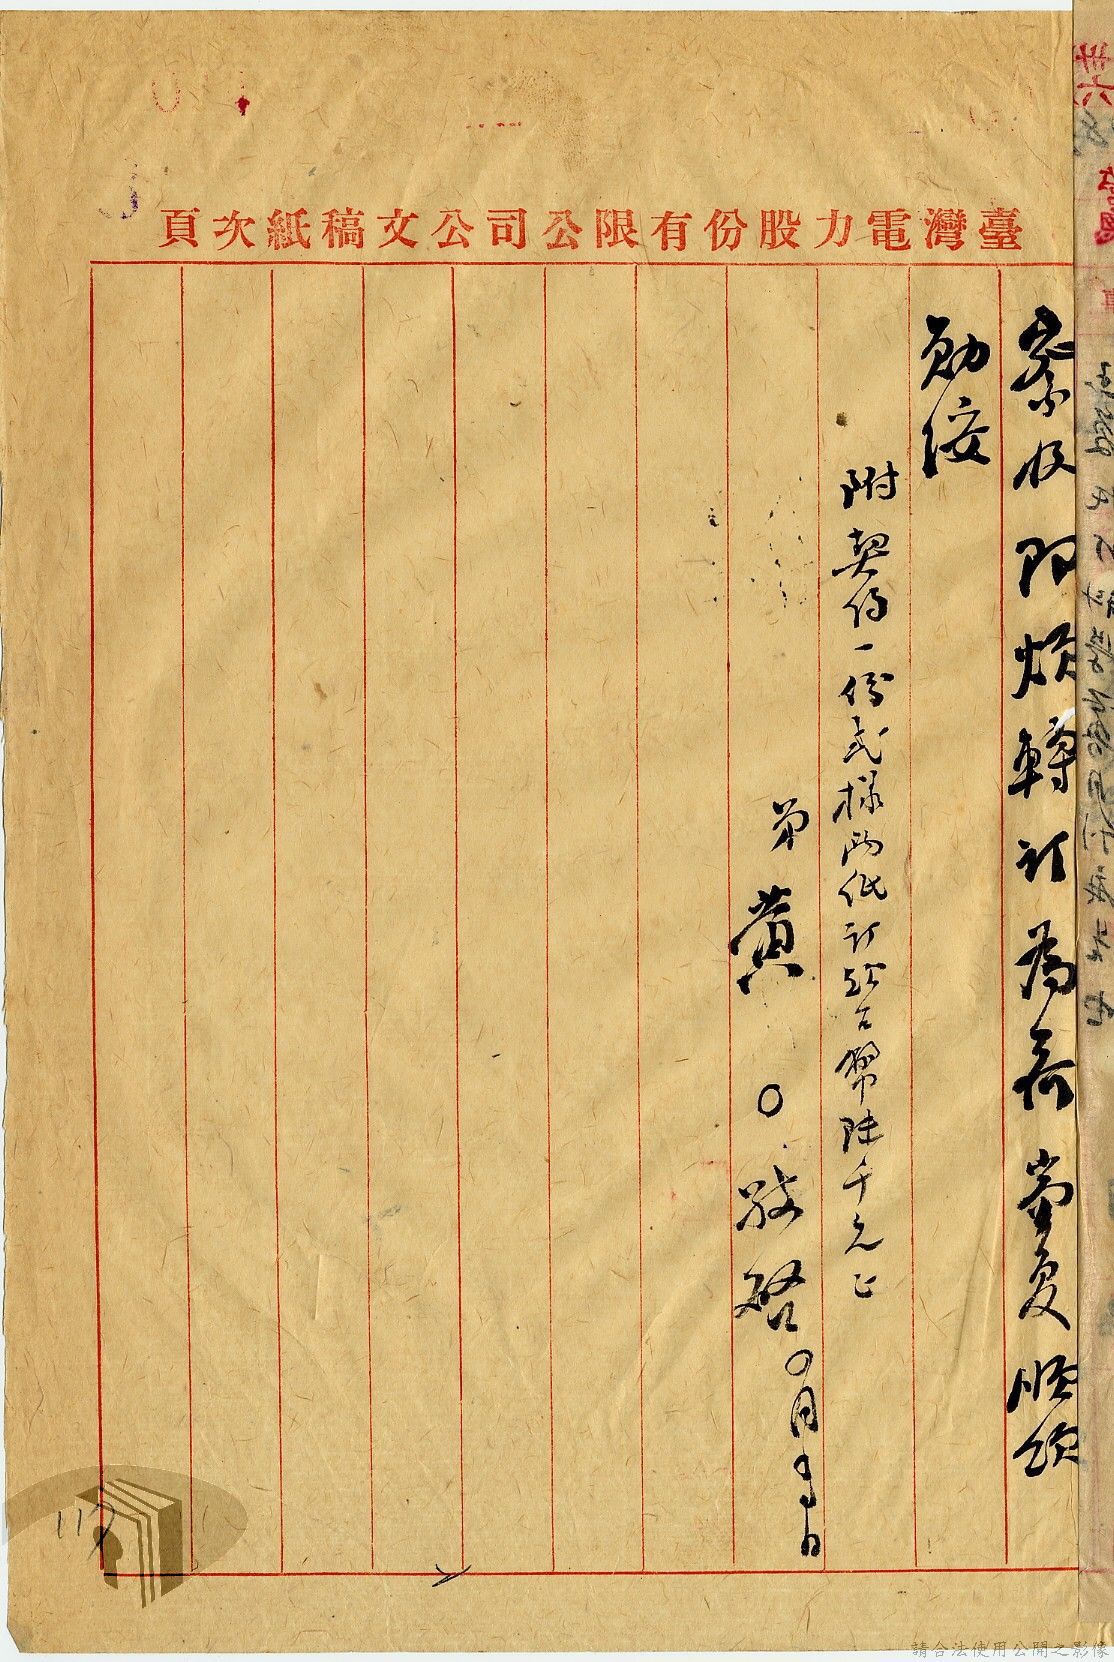 臺灣電力股份有限公司公文稿紙次頁
察收即煩轉訂為荷 耑复順頌
勛綏
附契約一份式樣兩紙訂款台幣陸千元正
弟 黃○ 敬啓 ○月○日
117
請合法使用公開之影像